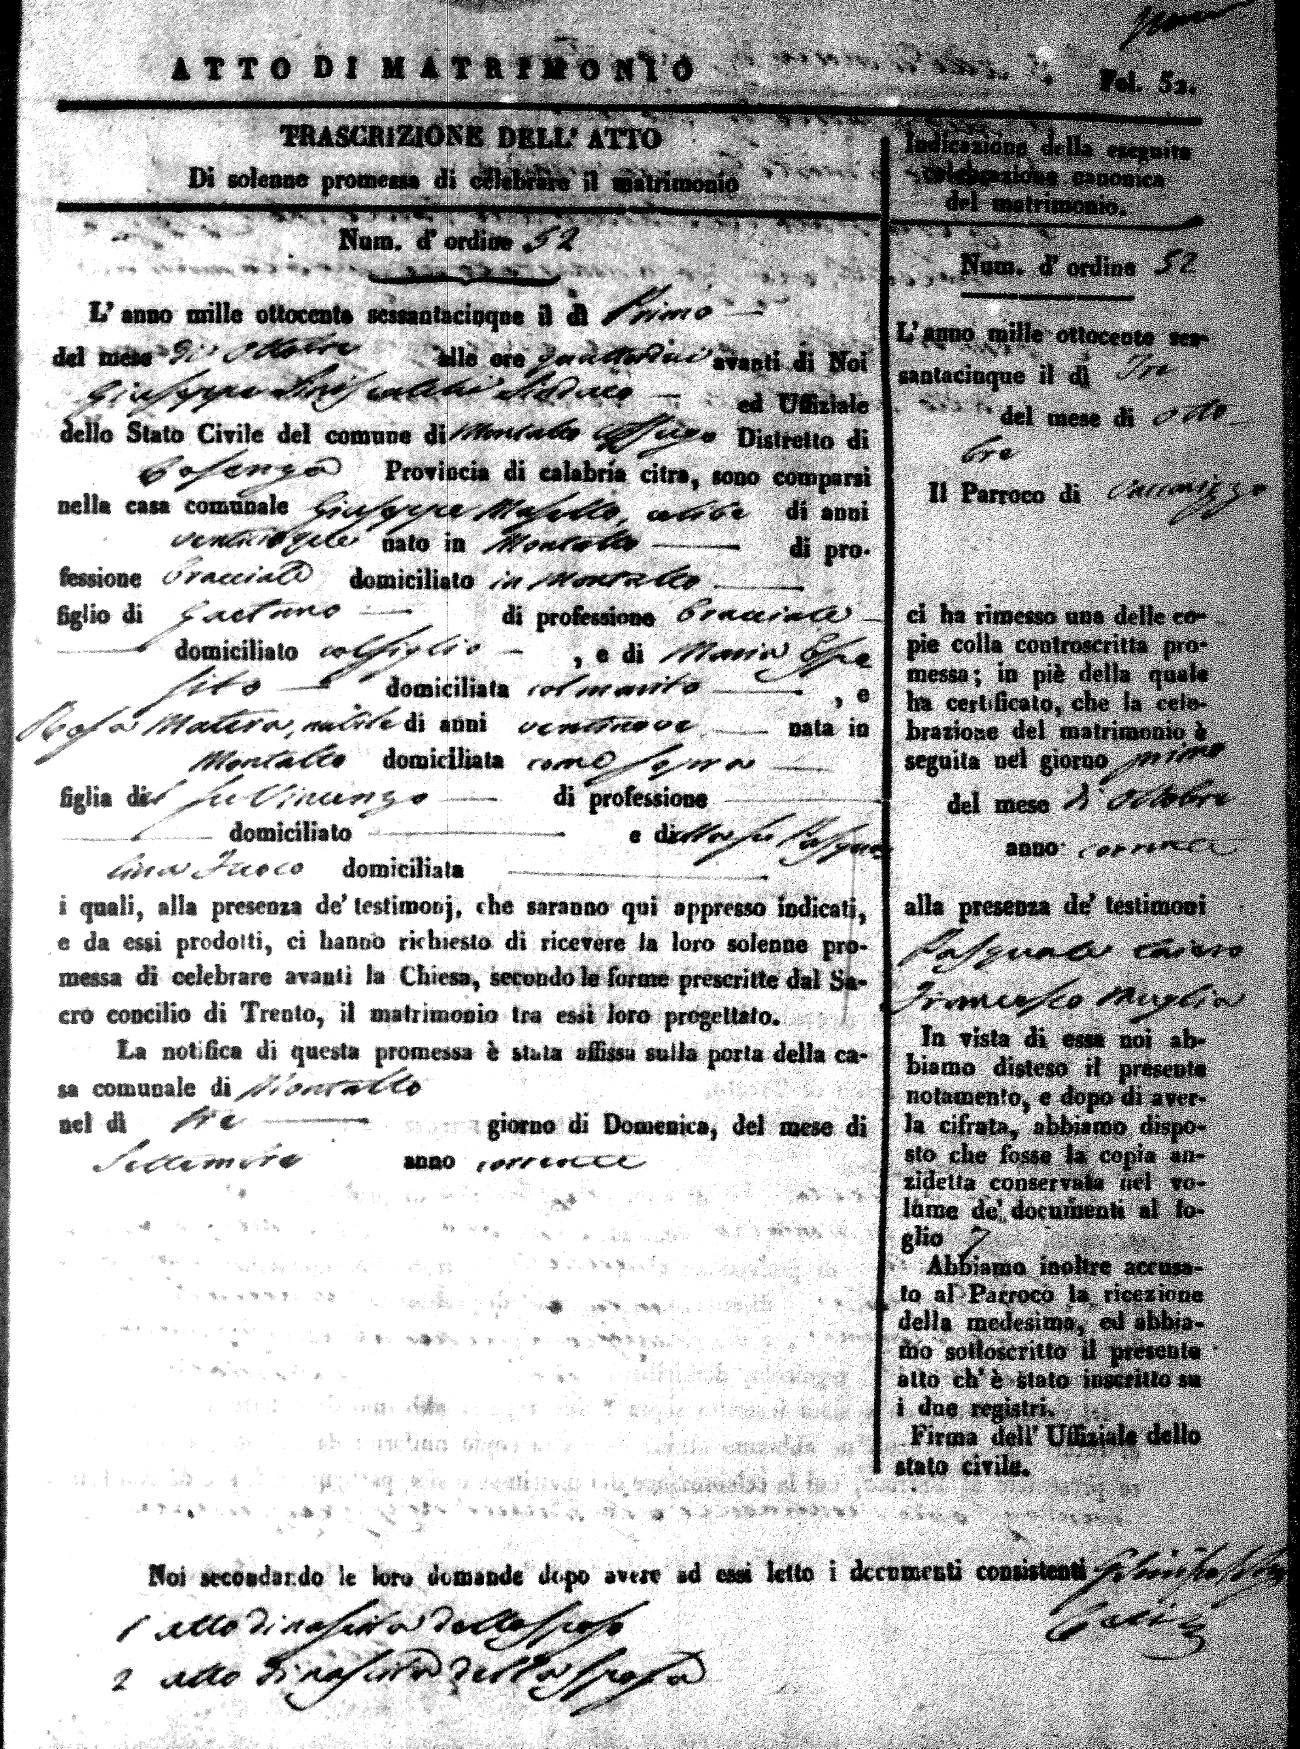 ATTO DI MATRIMONIO
Fol. 52.
TRASCRIZIONE DELL' ATTO
Di solenne promessa di celebrare il matrimonio
Num. d' ordine 52
L' anno mille ottocento sessantacinque il dì Primo
del mese di Ottobre alle ore quattordici avanti di Noi
Giuseppe Sindaco ed Uffiziale
dello Stato Civile del comune di Montalto Uffugo Distretto di
Cosenza Provincia di calabria citra, sono comparsi
nella casa comunale Giuseppe Masello, celibe di anni
nato in Montalto di pro-
fessione bracciale domiciliato in Montalto
figlio di Gaetano di professione bracciale
domiciliato col figlio , e di Maria Espo
sito domiciliata col marito , e
Rosa Matera, nubile di anni ventinove nata in
Montalto domiciliata come sopra
figlia del fu Vincenzo di professione
domiciliato e della fu Pasqua
lina Fuoco domiciliata
i quali, alla presenza de' testimonj, che saranno qui appresso indicati,
e da essi prodotti, ci hanno richiesto di ricevere la loro solenne pro-
messa di celebrare avanti la Chiesa, secondo le forme prescritte dal Sa-
cro concilio di Trento, il matrimonio tra essi loro progettato.
La notifica di questa promessa è stata affissa sulla porta della ca-
sa comunale di Montalto
nel dì tre giorno di Domenica, del mese di
Settembre anno corrente
Indicazione della eseguita
celebrazione canonica
del matrimonio.
Num. d' ordine 52
L' anno mille ottocento ses-
santacinque il dì Tre
del mese di Otto
bre
Il Parroco di Vaccarizzo
ci ha rimesso una delle co-
pie colla controscritta pro-
messa; in piè della quale
ha certificato, che la cele-
brazione del matrimonio è
seguita nel giorno primo
del mese di Ottobre
anno corrente
alla presenza de' testimoni
Pasquale Cairo
Francesco Muglia
In vista di essa noi ab-
biamo disteso il presente
notamento, e dopo di aver-
la cifrata, abbiamo dispo-
sto che fosse la copia an-
zidetta conservata nel vo-
lume de' documenti al fo-
glio 7
Abbiamo inoltre accusa-
to al Parroco la ricezione
della medesima, ed abbia-
mo sottoscritto il presente
atto ch' è stato inscritto su
i due registri.
Firma dell' Uffiziale dello
stato civile.
Noi secondando le loro domande dopo avere ad essi letto i documenti consistenti
1 atto di nascita dello sposo
2 atto di nascita della sposa